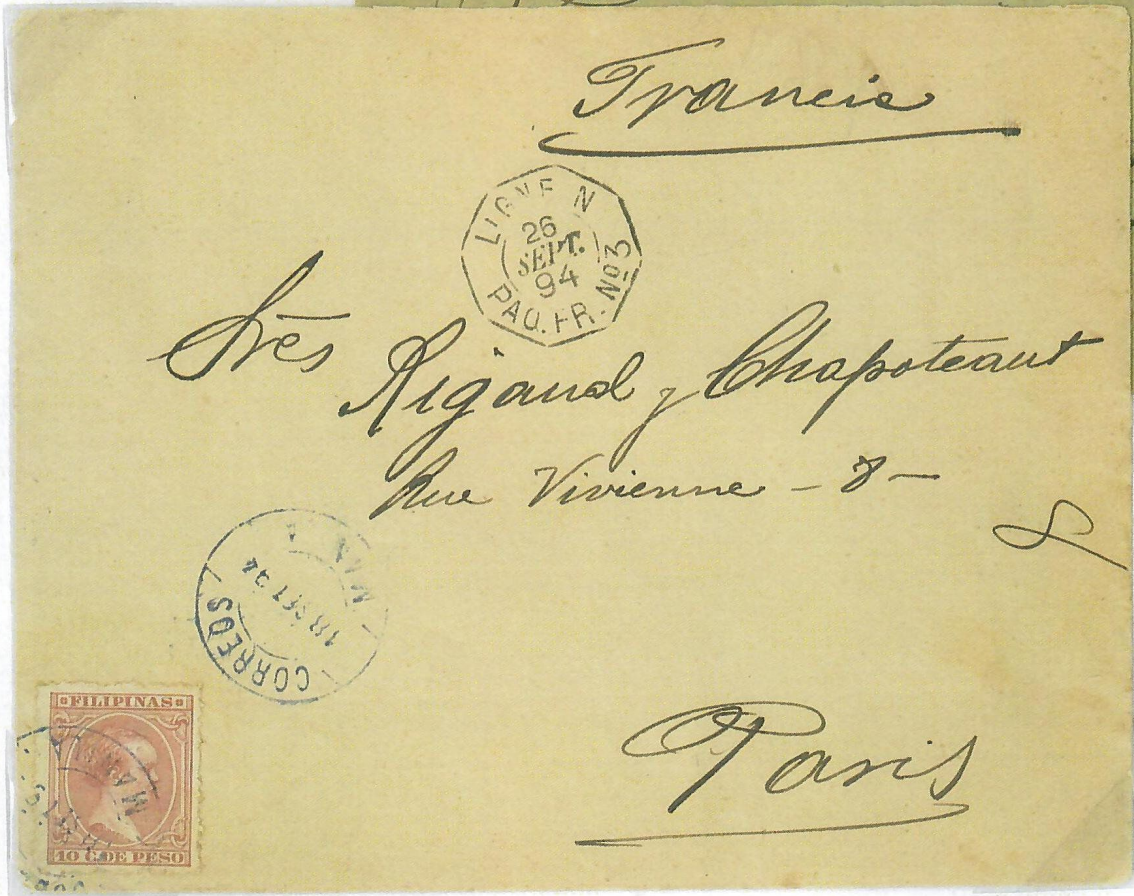 Francia
LIGNE N
26
SEPT.
94
PAQ. FR. Nº3
Srēs Rigaud y Chapoteaut
Rue Vivienne - 8 -
8
CORREOS
18 SET 94
MAN
FILIPINAS
MANILA
10 C. DE PESO
Paris